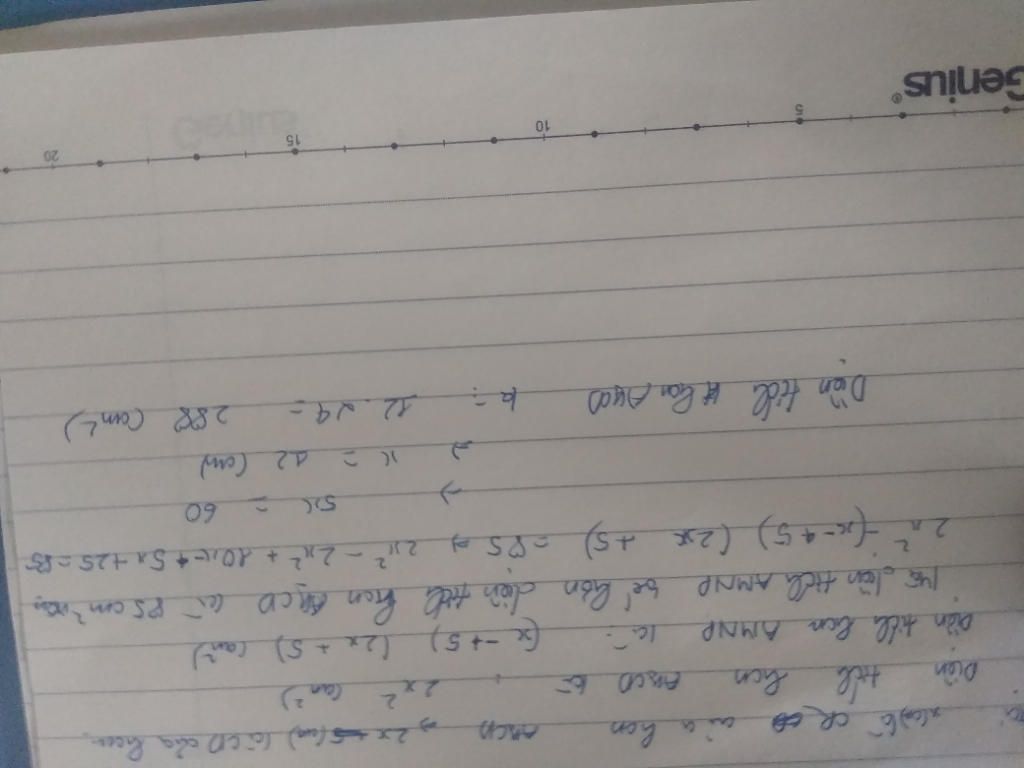 x(cm) là CR của hcn ABCD → 2x (cm) là CD của hcn
Diện tích hcn ABCD là: 2x² (cm²)
Diện tích hcn AMNP là: (x-5) (2x+5) (cm²)
Vì diện tích AMNP bé hơn diện tích hcn ABCD là 85 cm² nên
2x² - (x-5) (2x+5) = 85 → 2x² - 2x² + 10x - 5x + 25 = 85
→ 5x = 60
→ x = 12 (cm)
Diện tích hcn ABCD là: 12.24 = 288 (cm²)
5 10 15 20
Genius®